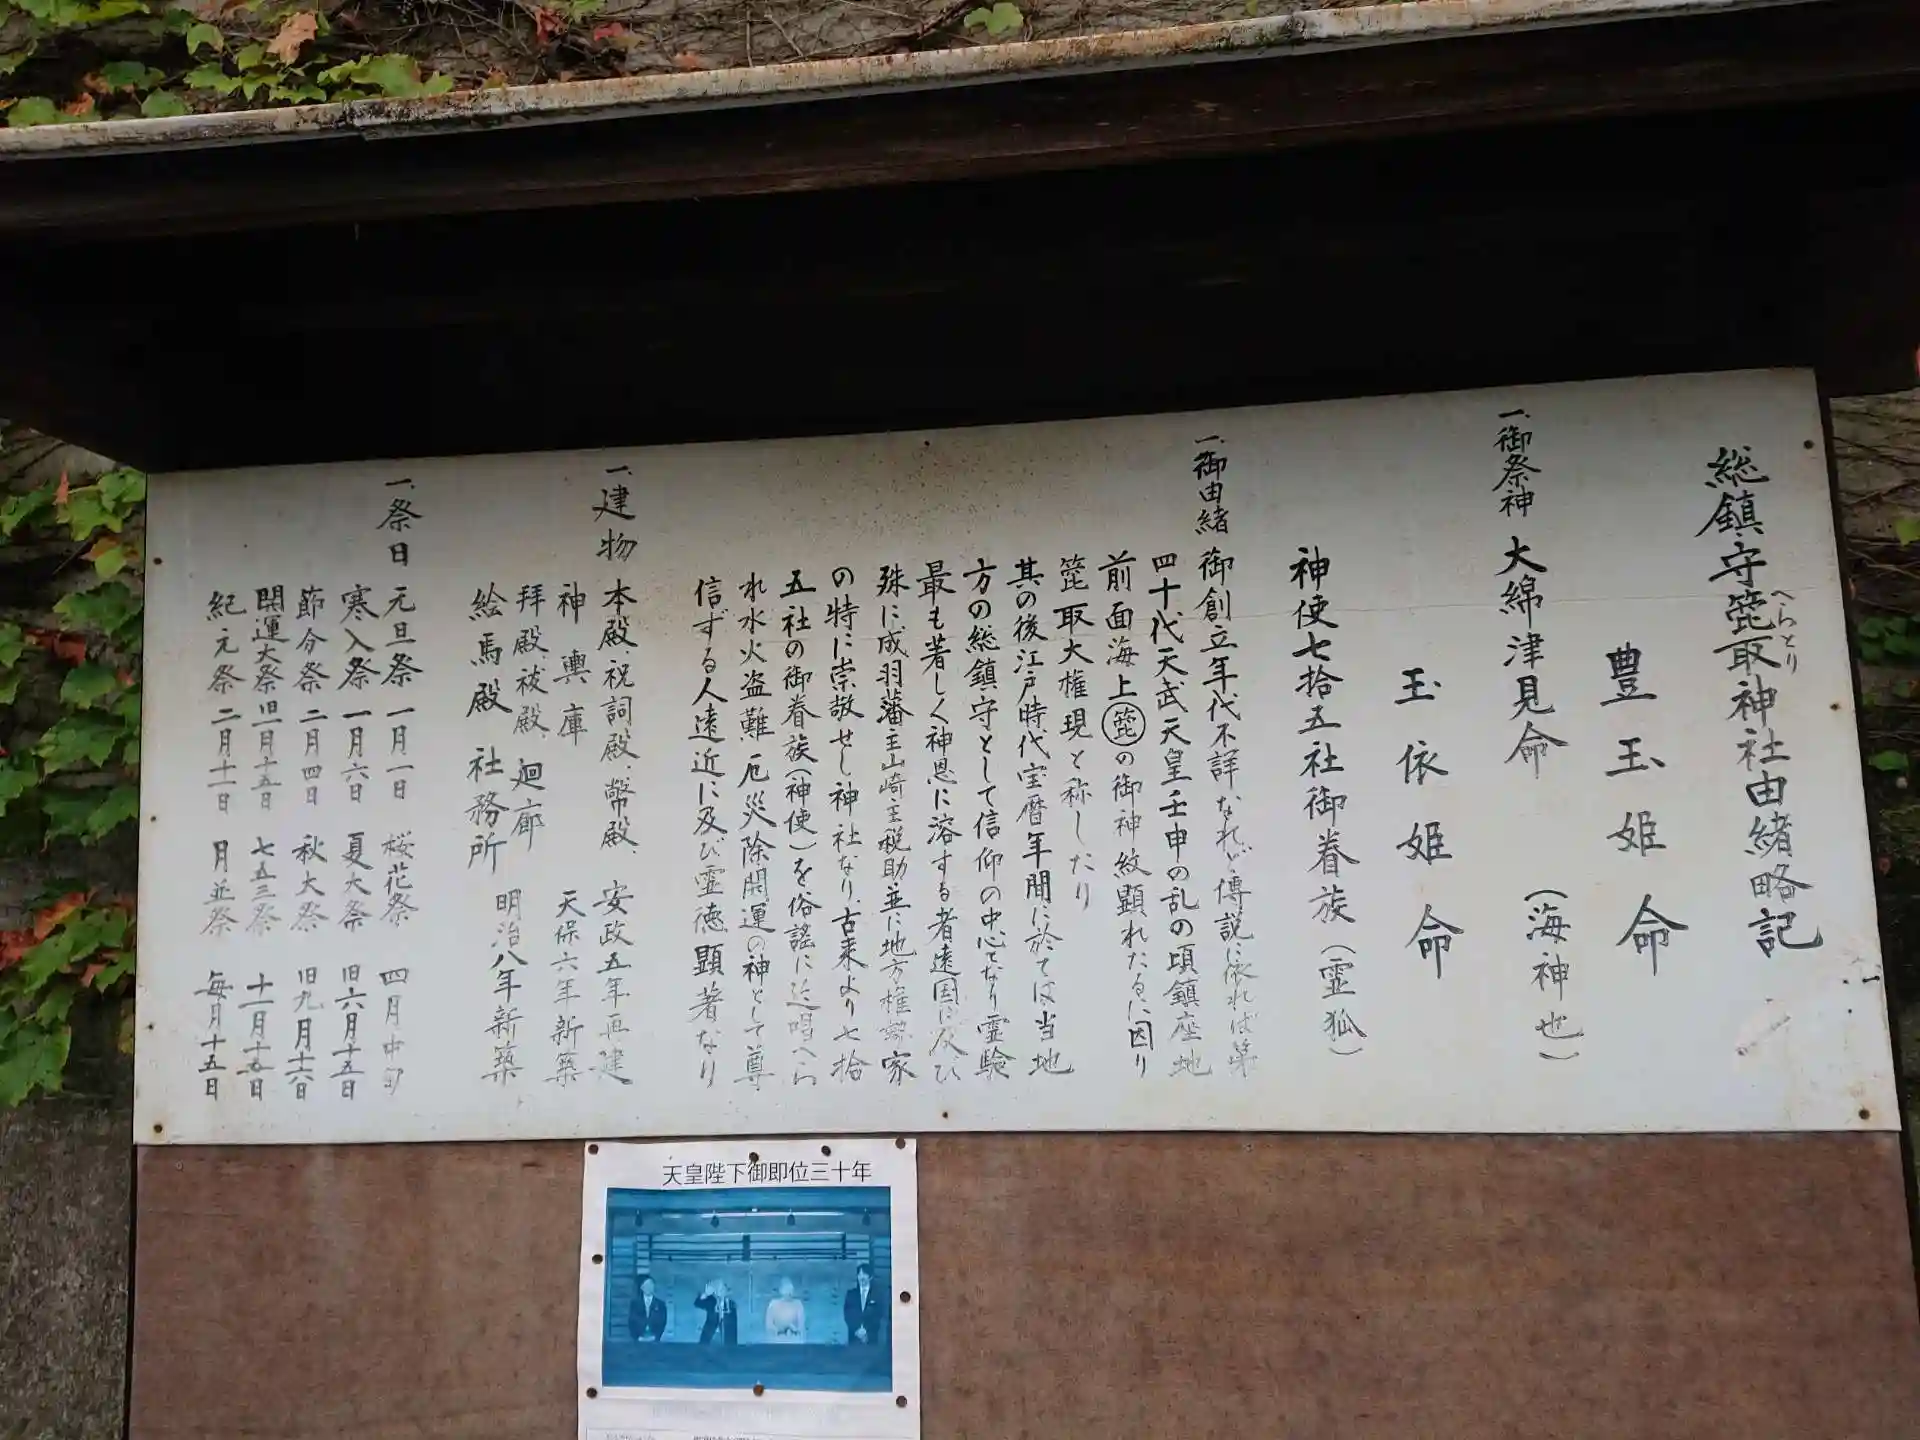 総鎮守箆取神社由緒略記
へらとり
一、御祭神 大綿津見命(海神也)
豊玉姫命
玉依姫命
神使七拾五社御眷族(霊狐)
一、御由緒 御創立年代不詳なれど傳説に依れば第
四十代天武天皇壬申の乱の頃鎮座地
前面海上箆の御神紋顕れたるに因り
箆取大権現と称したり
其の後江戸時代宝暦年間に於ては当地
方の総鎮守として信仰の中心となり霊験
最も著しく神恩に浴する者遠国に及び
殊に成羽藩主山崎主税助並に地方権家
の特に崇敬せし神社なり、古来より七拾
五社の御眷族(神使)を俗謡に迄唱へら
れ水火盗難、厄災除、開運の神として尊
信ずる人遠近に及び霊徳顕著なり
一、建物 本殿、祝詞殿、幣殿 安政五年再建
神輿庫 天保六年新築
拝殿、祓殿、廻廊 明治八年新築
絵馬殿 社務所
一、祭日 元旦祭 一月一日 桜花祭 四月中旬
寒入祭 一月六日 夏大祭 旧六月十五日
節分祭 二月四日 秋大祭 旧九月十六日
開運大祭 旧一月十五日 七五三祭 十一月十五日
紀元祭 二月十一日 月並祭 毎月十五日
天皇陛下御即位三十年